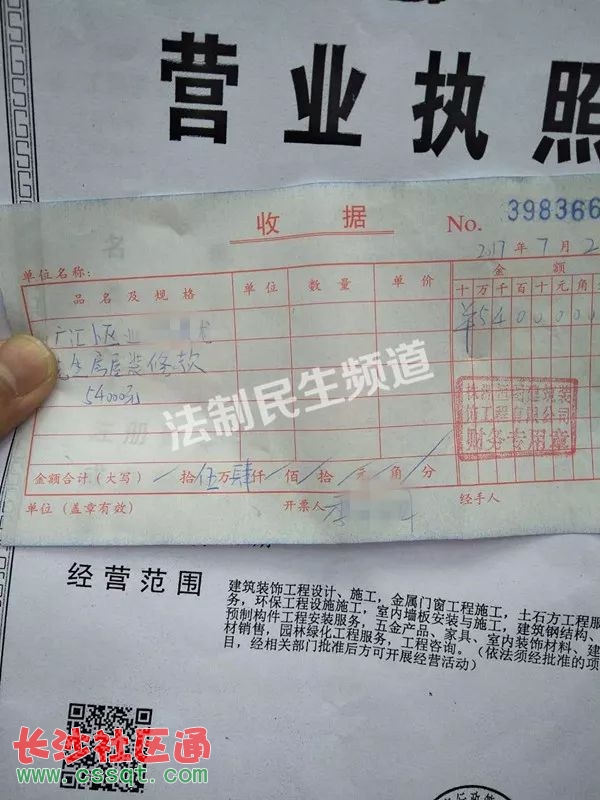 营业执照
收据 No. 398366
2017年7月2
单位名称:
品名及规格 单位 数量 单价 金额
十万千百十元角分
广汇小区业 龙
先生房屋装修款 ¥5400000
54000元
法制民生频道
饰工程有限公司
财务专用章
金额合计(大写) 拾伍万肆仟 佰 拾 元 角 分
单位(盖章有效) 开票人 经手人
经营范围
建筑装饰工程设计、施工,金属门窗工程施工,土石方工程服
务,环保工程设施施工,室内墙板安装与施工,建筑钢结构、
预制构件工程安装服务,五金产品、家具、室内装饰材料、建
材销售,园林绿化工程服务,工程咨询。(依法须经批准的项
目,经相关部门批准后方可开展经营活动)
长沙社区通
www.cssqt.com